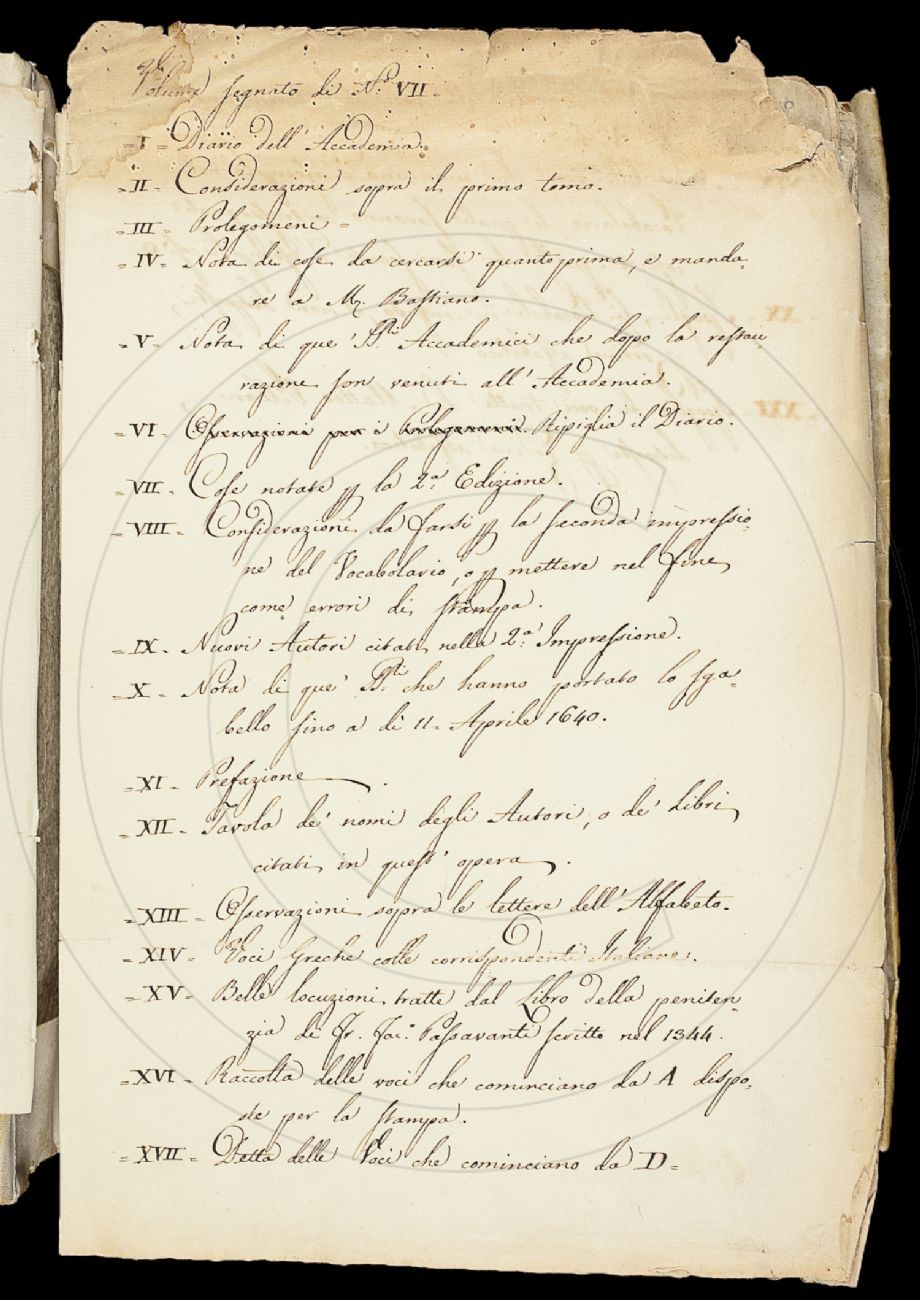 Volume segnato di N.º VII =
= I = Diario dell' Accademia.
= II = Considerazioni sopra il primo tomo.
= III = Prolegomeni =
= IV = Nota di cose da cercarsi quanto prima, e manda=
re a M. Bastiano.
= V = Nota di que' SS.ri Accademici che dopo la restau=
razione son venuti all' Accademia.
= VI = Osservazioni per i Prolegomeni. Ripiglia il Diario.
= VII = Cose notate p la 2.ª Edizione.
= VIII = Considerazioni da farsi p la seconda impressio=
ne del Vocabolario, o p mettere nel fine
come errori di stampa.
= IX = Nuovi Autori citati nella 2.ª Impressione.
= X = Nota di que' SS.ri che hanno portato lo sga=
bello sino a dì 11. Aprile 1640.
= XI = Prefazione
= XII = Tavola de' nomi degli Autori, o de' Libri
citati in quest' opera.
= XIII = Osservazioni sopra le lettere dell' Alfabeto.
= XIV = Voci Greche colle corrispondenti Italiane.
= XV = Belle locuzioni tratte dal Libro della peniten=
zia di Fr. Jac.º Passavanti scritto nel 1344.
= XVI = Raccolta delle voci che cominciano da A dispo=
ste per la stampa.
= XVII = Detta delle Voci che cominciano da D =